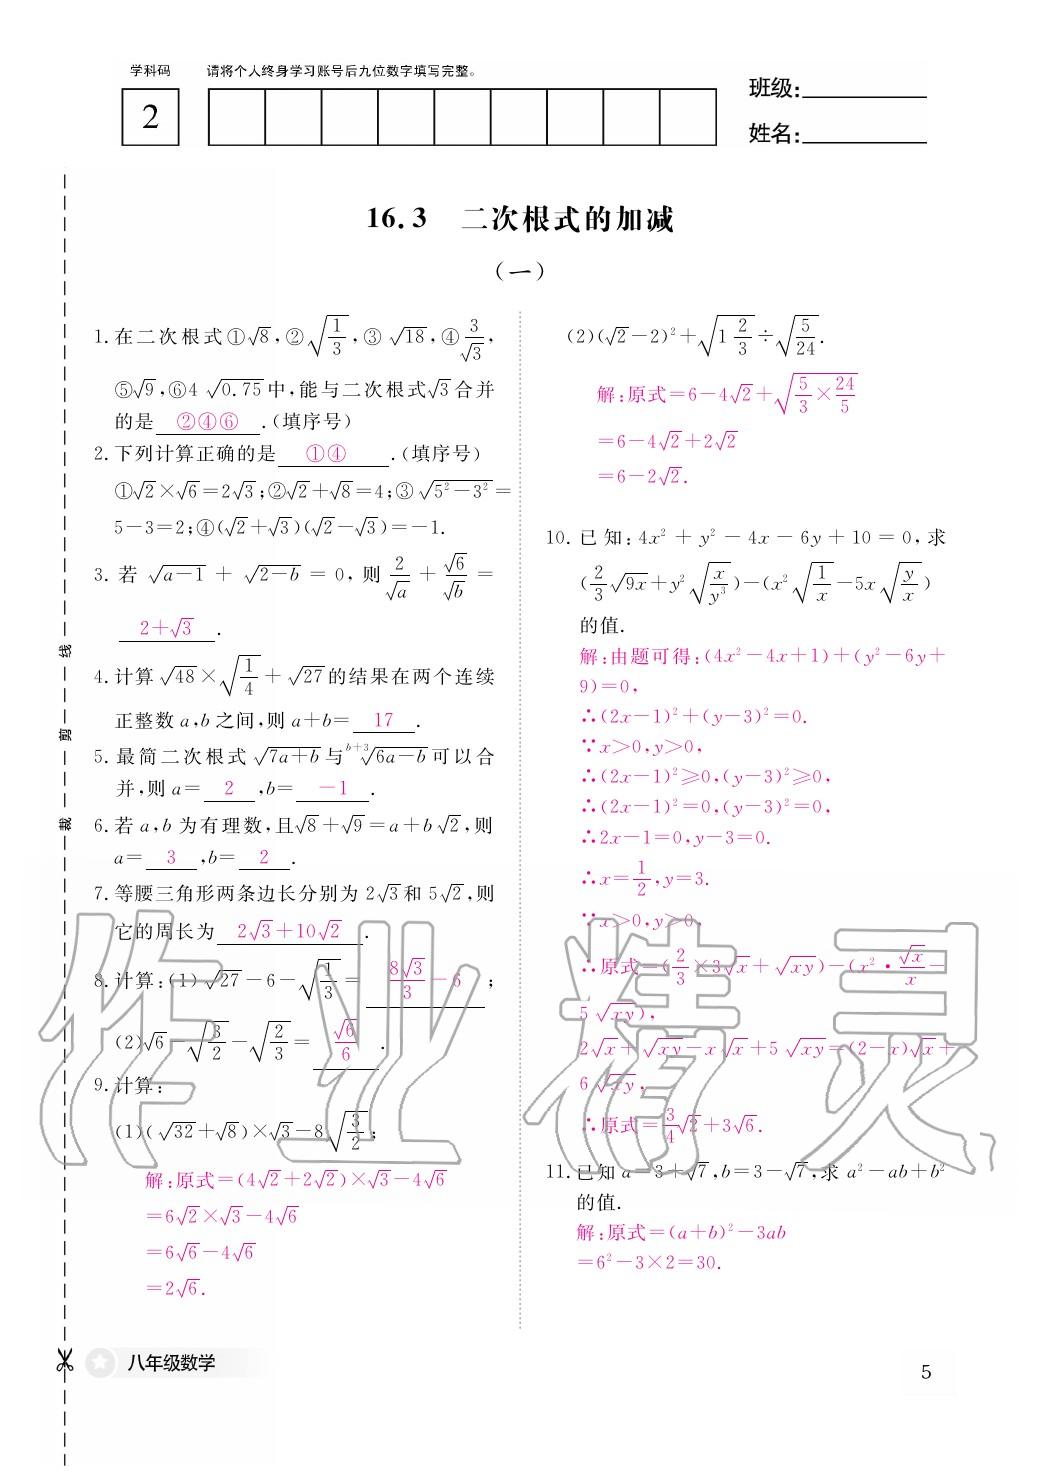 学科码 请将个人终身学习账号后九位数字填写完整。
2
班级:
姓名:
16.3 二次根式的加减
(一)
1.在二次根式①√8,②√(1/3),③√18,④3/√3,
⑤√9,⑥4√0.75中,能与二次根式√3合并
的是 ②④⑥ .(填序号)
2.下列计算正确的是 ①④ .(填序号)
①√2×√6=2√3;②√2+√8=4;③√(5²-3²)=
5-3=2;④(√2+√3)(√2-√3)=-1.
3.若√(a-1)+√(2-b)=0,则2/√a+√6/√b=
2+√3 .
4.计算√48×√(1/4)+√27的结果在两个连续
正整数a,b之间,则a+b= 17 .
5.最简二次根式√(7a+b)与 ᵇ⁺³√(6a-b)可以合
并,则a= 2 ,b= -1 .
6.若a,b为有理数,且√8+√9=a+b√2,则
a= 3 ,b= 2 .
7.等腰三角形两条边长分别为2√3和5√2,则
它的周长为 2√3+10√2 .
8.计算:(1)√27-6-√(1/3)= 8√3/3-6 ;
(2)√6-√(3/2)-√(2/3)= √6/6 .
9.计算:
(1)(√32+√8)×√3-8√(3/2);
解:原式=(4√2+2√2)×√3-4√6
=6√2×√3-4√6
=6√6-4√6
=2√6.
(2)(√2-2)²+√(1 2/3)÷√(5/24).
解:原式=6-4√2+√(5/3×24/5)
=6-4√2+2√2
=6-2√2.
10.已知:4x²+y²-4x-6y+10=0,求
(2/3√9x+y²√(x/y³))-(x²√(1/x)-5x√(y/x))
的值.
解:由题可得:(4x²-4x+1)+(y²-6y+
9)=0,
∴(2x-1)²+(y-3)²=0.
∵x>0,y>0,
∴(2x-1)²≥0,(y-3)²≥0,
∴(2x-1)²=0,(y-3)²=0,
∴2x-1=0,y-3=0.
∴x=1/2,y=3.
∵x>0,y>0,
∴原式=(2/3×3√x+√xy)-(x²·√x/x-
5√xy),
2√x+√xy-x√x+5√xy=(2-x)√x+
6√xy,
∴原式=3/4√2+3√6.
11.已知a=3+√7,b=3-√7,求a²-ab+b²
的值.
解:原式=(a+b)²-3ab
=6²-3×2=30.
线
剪
裁
作业精灵
八年级数学
5